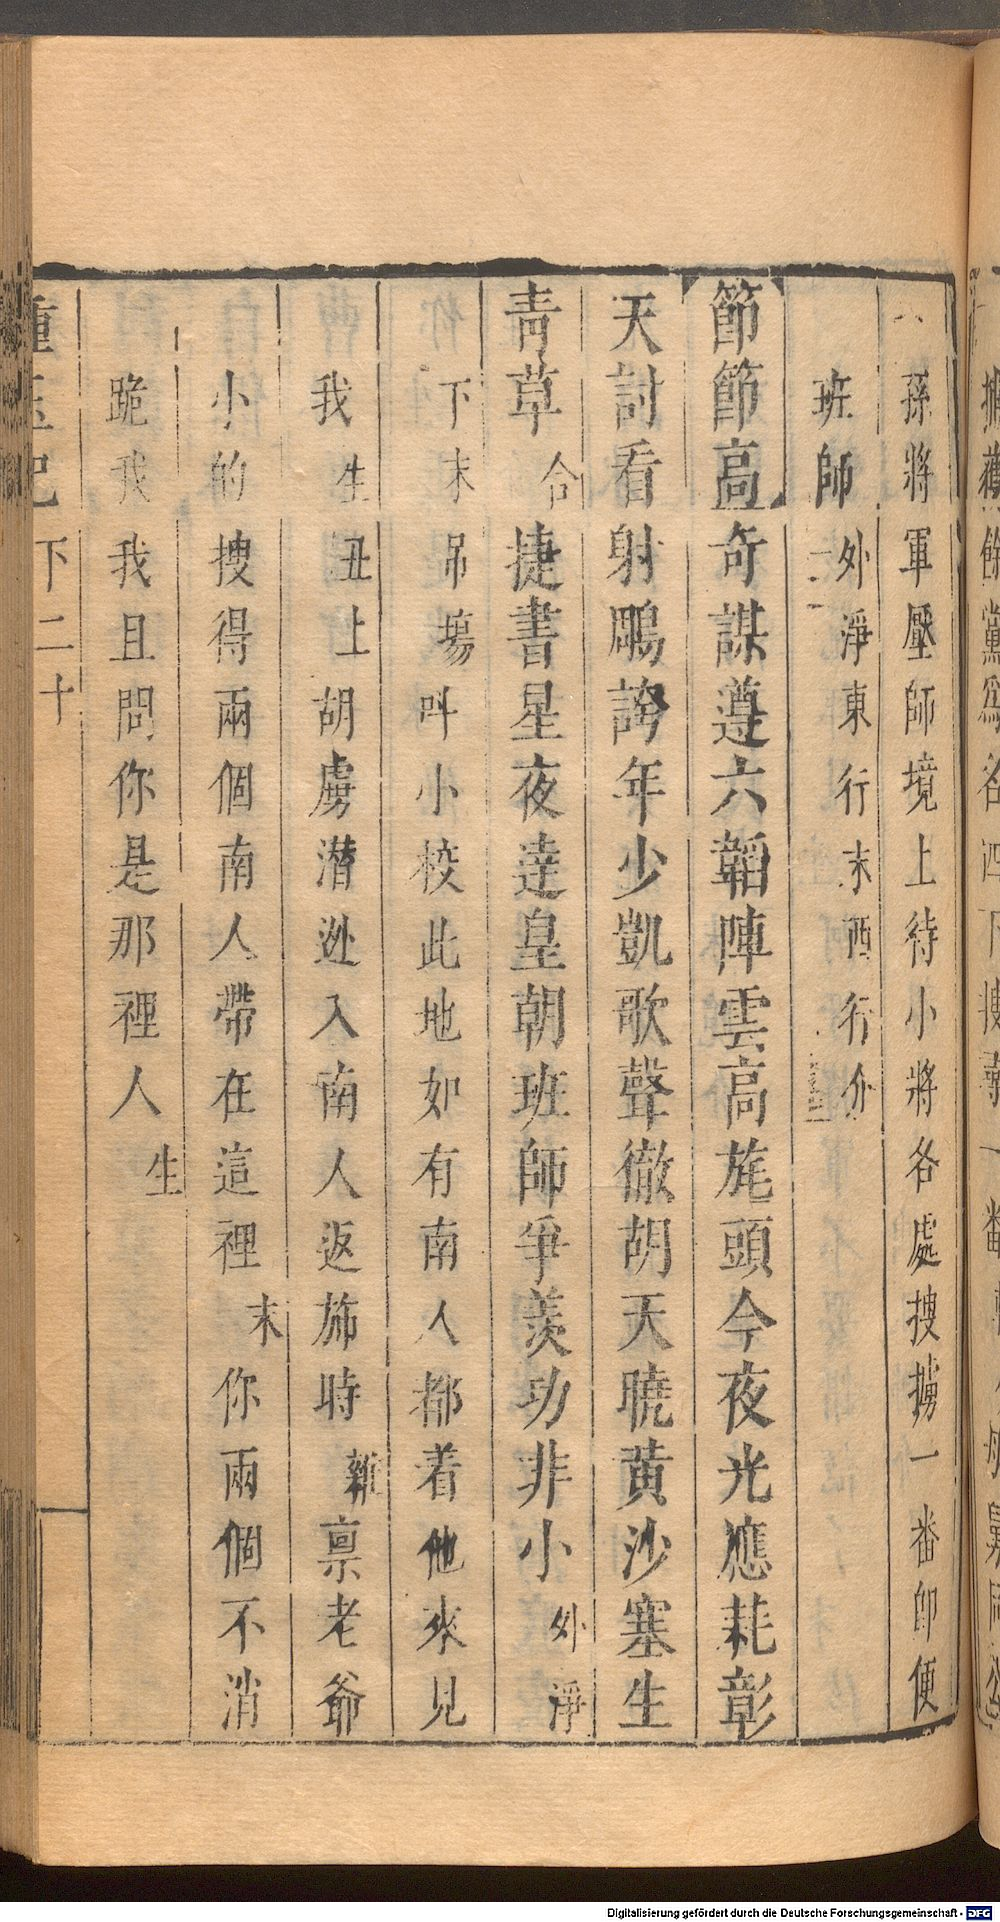 孫將軍壓師境上待小將各處搜擄一番卽便
班師外淨東行末西行介
節節高奇謀遵六韜陣雲高旄頭今夜光應耗彰
天討看射鵰誇年少凱歌聲徹胡天曉黄沙塞生
青草合捷書星夜達皇朝班師爭羨功非小外淨
下末吊塲呌小校此地如有南人都着他來見
我生丑上胡虜潛逃入南人返斾時雜禀老爺
小的搜得兩個南人帶在這裡末你兩個不消
跪我我且問你是那裡人生
下二十
Digitalisierung gefördert durch die Deutsche Forschungsgemeinschaft - DFG